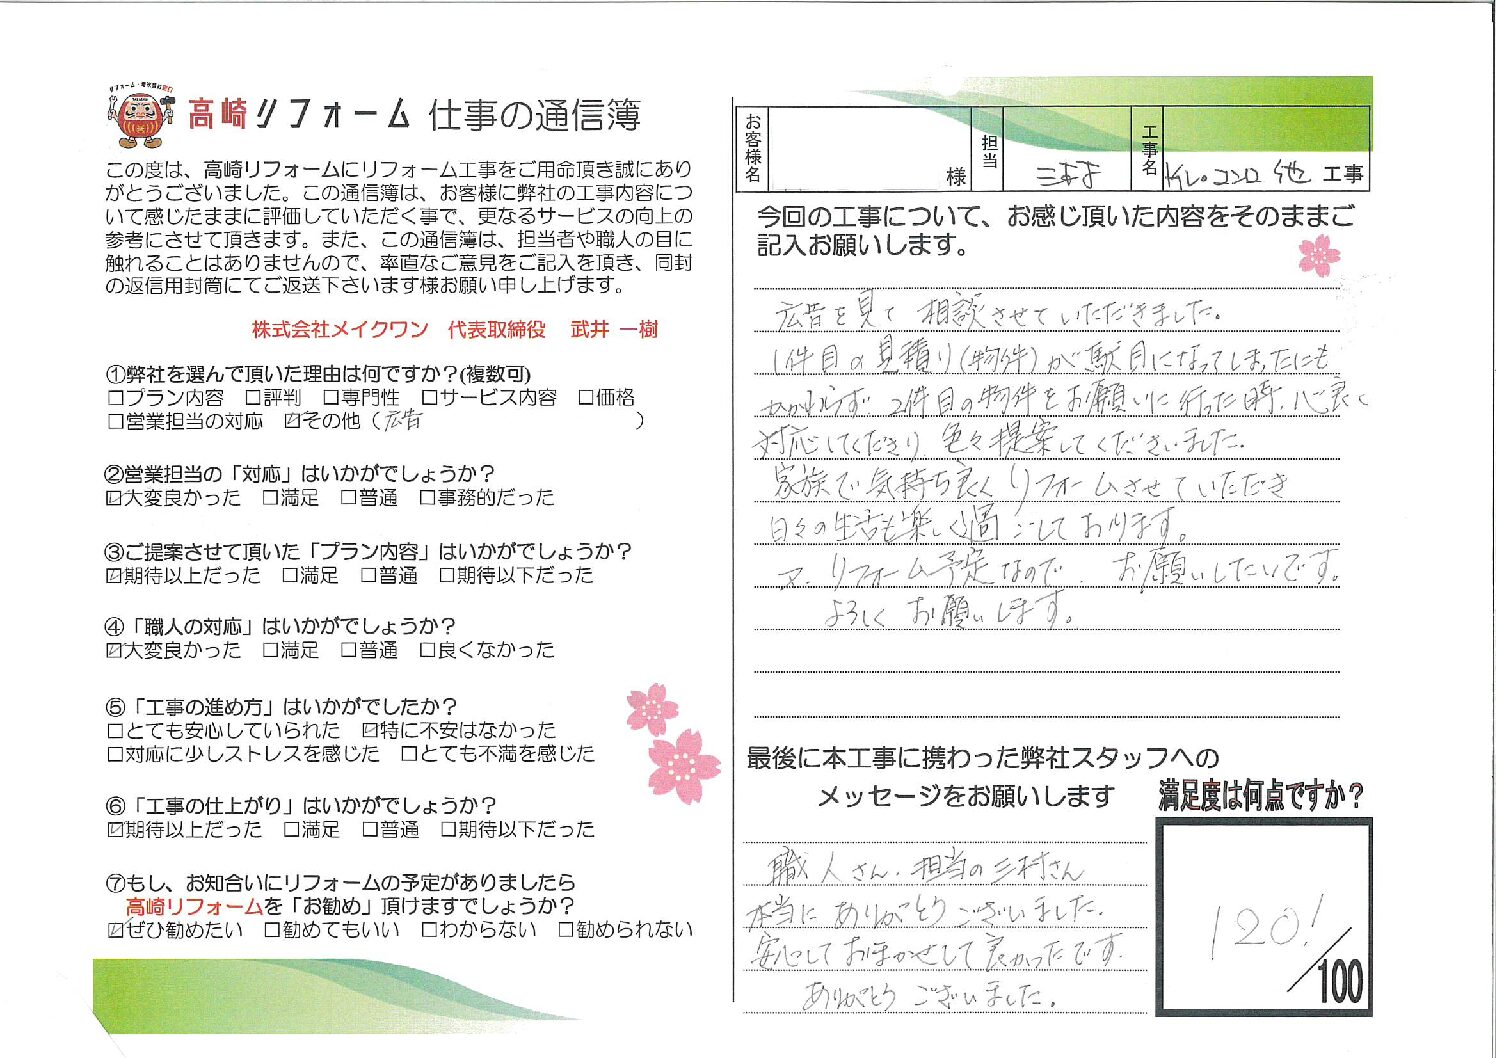 高崎リフォーム 仕事の通信簿
この度は、高崎リフォームにリフォーム工事をご用命頂き誠にあり
がとうございました。この通信簿は、お客様に弊社の工事内容につ
いて感じたままに評価していただく事で、更なるサービスの向上の
参考にさせて頂きます。また、この通信簿は、担当者や職人の目に
触れることはありませんので、率直なご意見をご記入を頂き、同封
の返信用封筒にてご返送下さいます様お願い申し上げます。
株式会社メイクワン 代表取締役 武井 一樹
①弊社を選んで頂いた理由は何ですか?(複数可)
□プラン内容 □評判 □専門性 □サービス内容 □価格
□営業担当の対応 ☑その他（広告 ）
②営業担当の「対応」はいかがでしょうか?
☑大変良かった □満足 □普通 □事務的だった
③ご提案させて頂いた「プラン内容」はいかがでしょうか?
☑期待以上だった □満足 □普通 □期待以下だった
④「職人の対応」はいかがでしょうか?
☑大変良かった □満足 □普通 □良くなかった
⑤「工事の進め方」はいかがでしたか?
□とても安心していられた ☑特に不安はなかった
□対応に少しストレスを感じた □とても不満を感じた
⑥「工事の仕上がり」はいかがでしょうか?
☑期待以上だった □満足 □普通 □期待以下だった
⑦もし、お知合いにリフォームの予定がありましたら
高崎リフォームを「お勧め」頂けますでしょうか?
☑ぜひ勧めたい □勧めてもいい □わからない □勧められない
お客様名 様 担当 三村 工事名 トイレ・コンロ 他 工事
今回の工事について、お感じ頂いた内容をそのままご
記入お願いします。
広告を見て 相談させていただきました。
1件目の見積り(物件)が駄目になってしまったにも
かかわらず、2件目の物件をお願いに行った時、心良く
対応してくださり、色々提案してくださいました。
家族で気持ち良くリフォームさせていただき
日々の生活も楽しく過ごしております。
又、リフォーム予定なので、お願いしたいです。
よろしくお願いします。
最後に本工事に携わった弊社スタッフへの
メッセージをお願いします
満足度は何点ですか?
職人さん、担当の三村さん
本当にありがとうございました。
安心しておまかせして良かったです。
ありがとうございました。
120!
/100